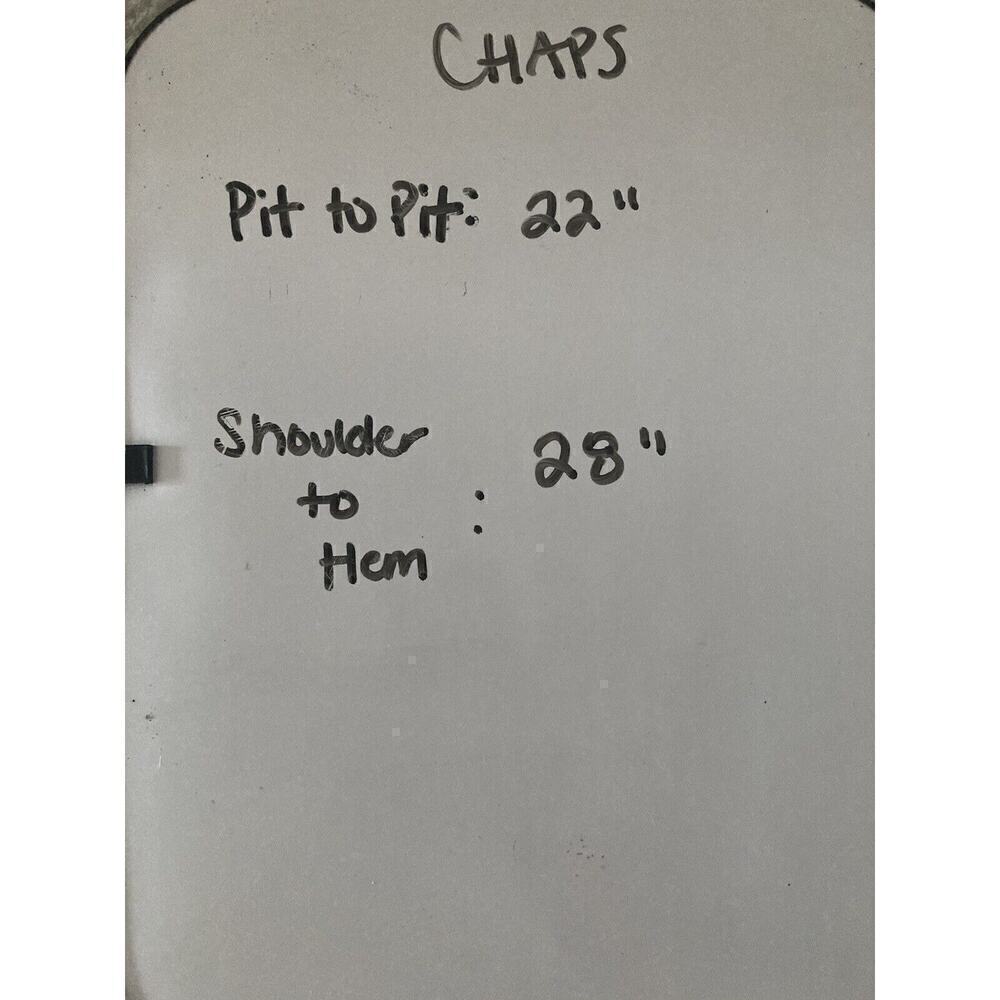 CHAPS
Pit to Pit: 22"
Shoulder
to : 28"
Hem